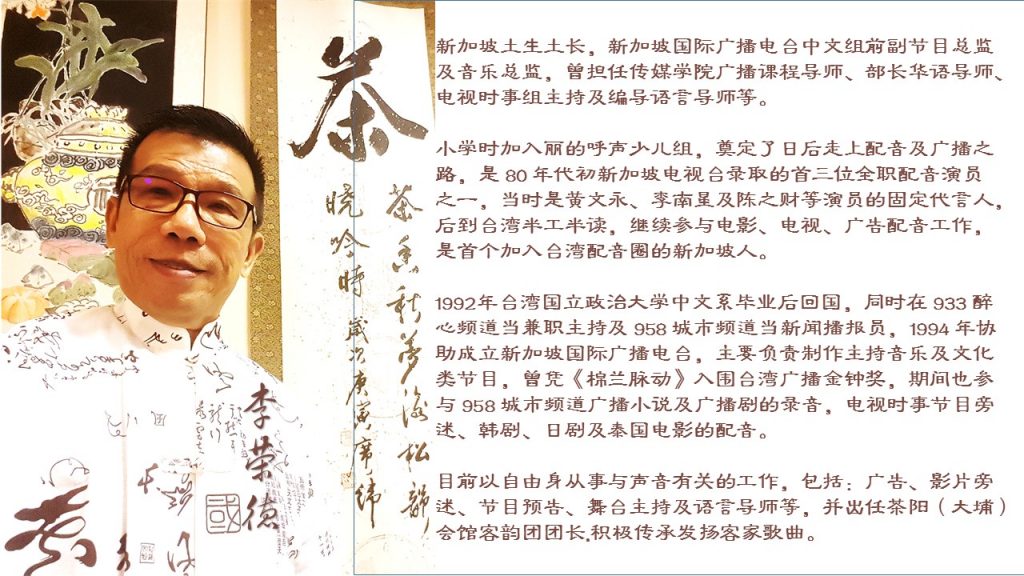 茶
茶香新梦后松韵
晓吟時
歲次庚寅席緯
李荣德
國
新加坡土生土长，新加坡国际广播电台中文组前副节目总监
及音乐总监，曾担任传媒学院广播课程导师、部长华语导师、
电视时事组主持及编导语言导师等。
小学时加入丽的呼声少儿组，奠定了日后走上配音及广播之
路，是 80 年代初新加坡电视台录取的首三位全职配音演员
之一，当时是黄文永、李南星及陈之财等演员的固定代言人，
后到台湾半工半读，继续参与电影、电视、广告配音工作，
是首个加入台湾配音圈的新加坡人。
1992年台湾国立政治大学中文系毕业后回国，同时在 933 醉
心频道当兼职主持及 958 城市频道当新闻播报员，1994 年协
助成立新加坡国际广播电台，主要负责制作主持音乐及文化
类节目，曾凭《棉兰脉动》入围台湾广播金钟奖，期间也参
与 958 城市频道广播小说及广播剧的录音，电视时事节目旁
述、韩剧、日剧及泰国电影的配音。
目前以自由身从事与声音有关的工作，包括：广告、影片旁
述、节目预告、舞台主持及语言导师等，并出任茶阳（大埔）
会馆客韵团团长,积极传承发扬客家歌曲。